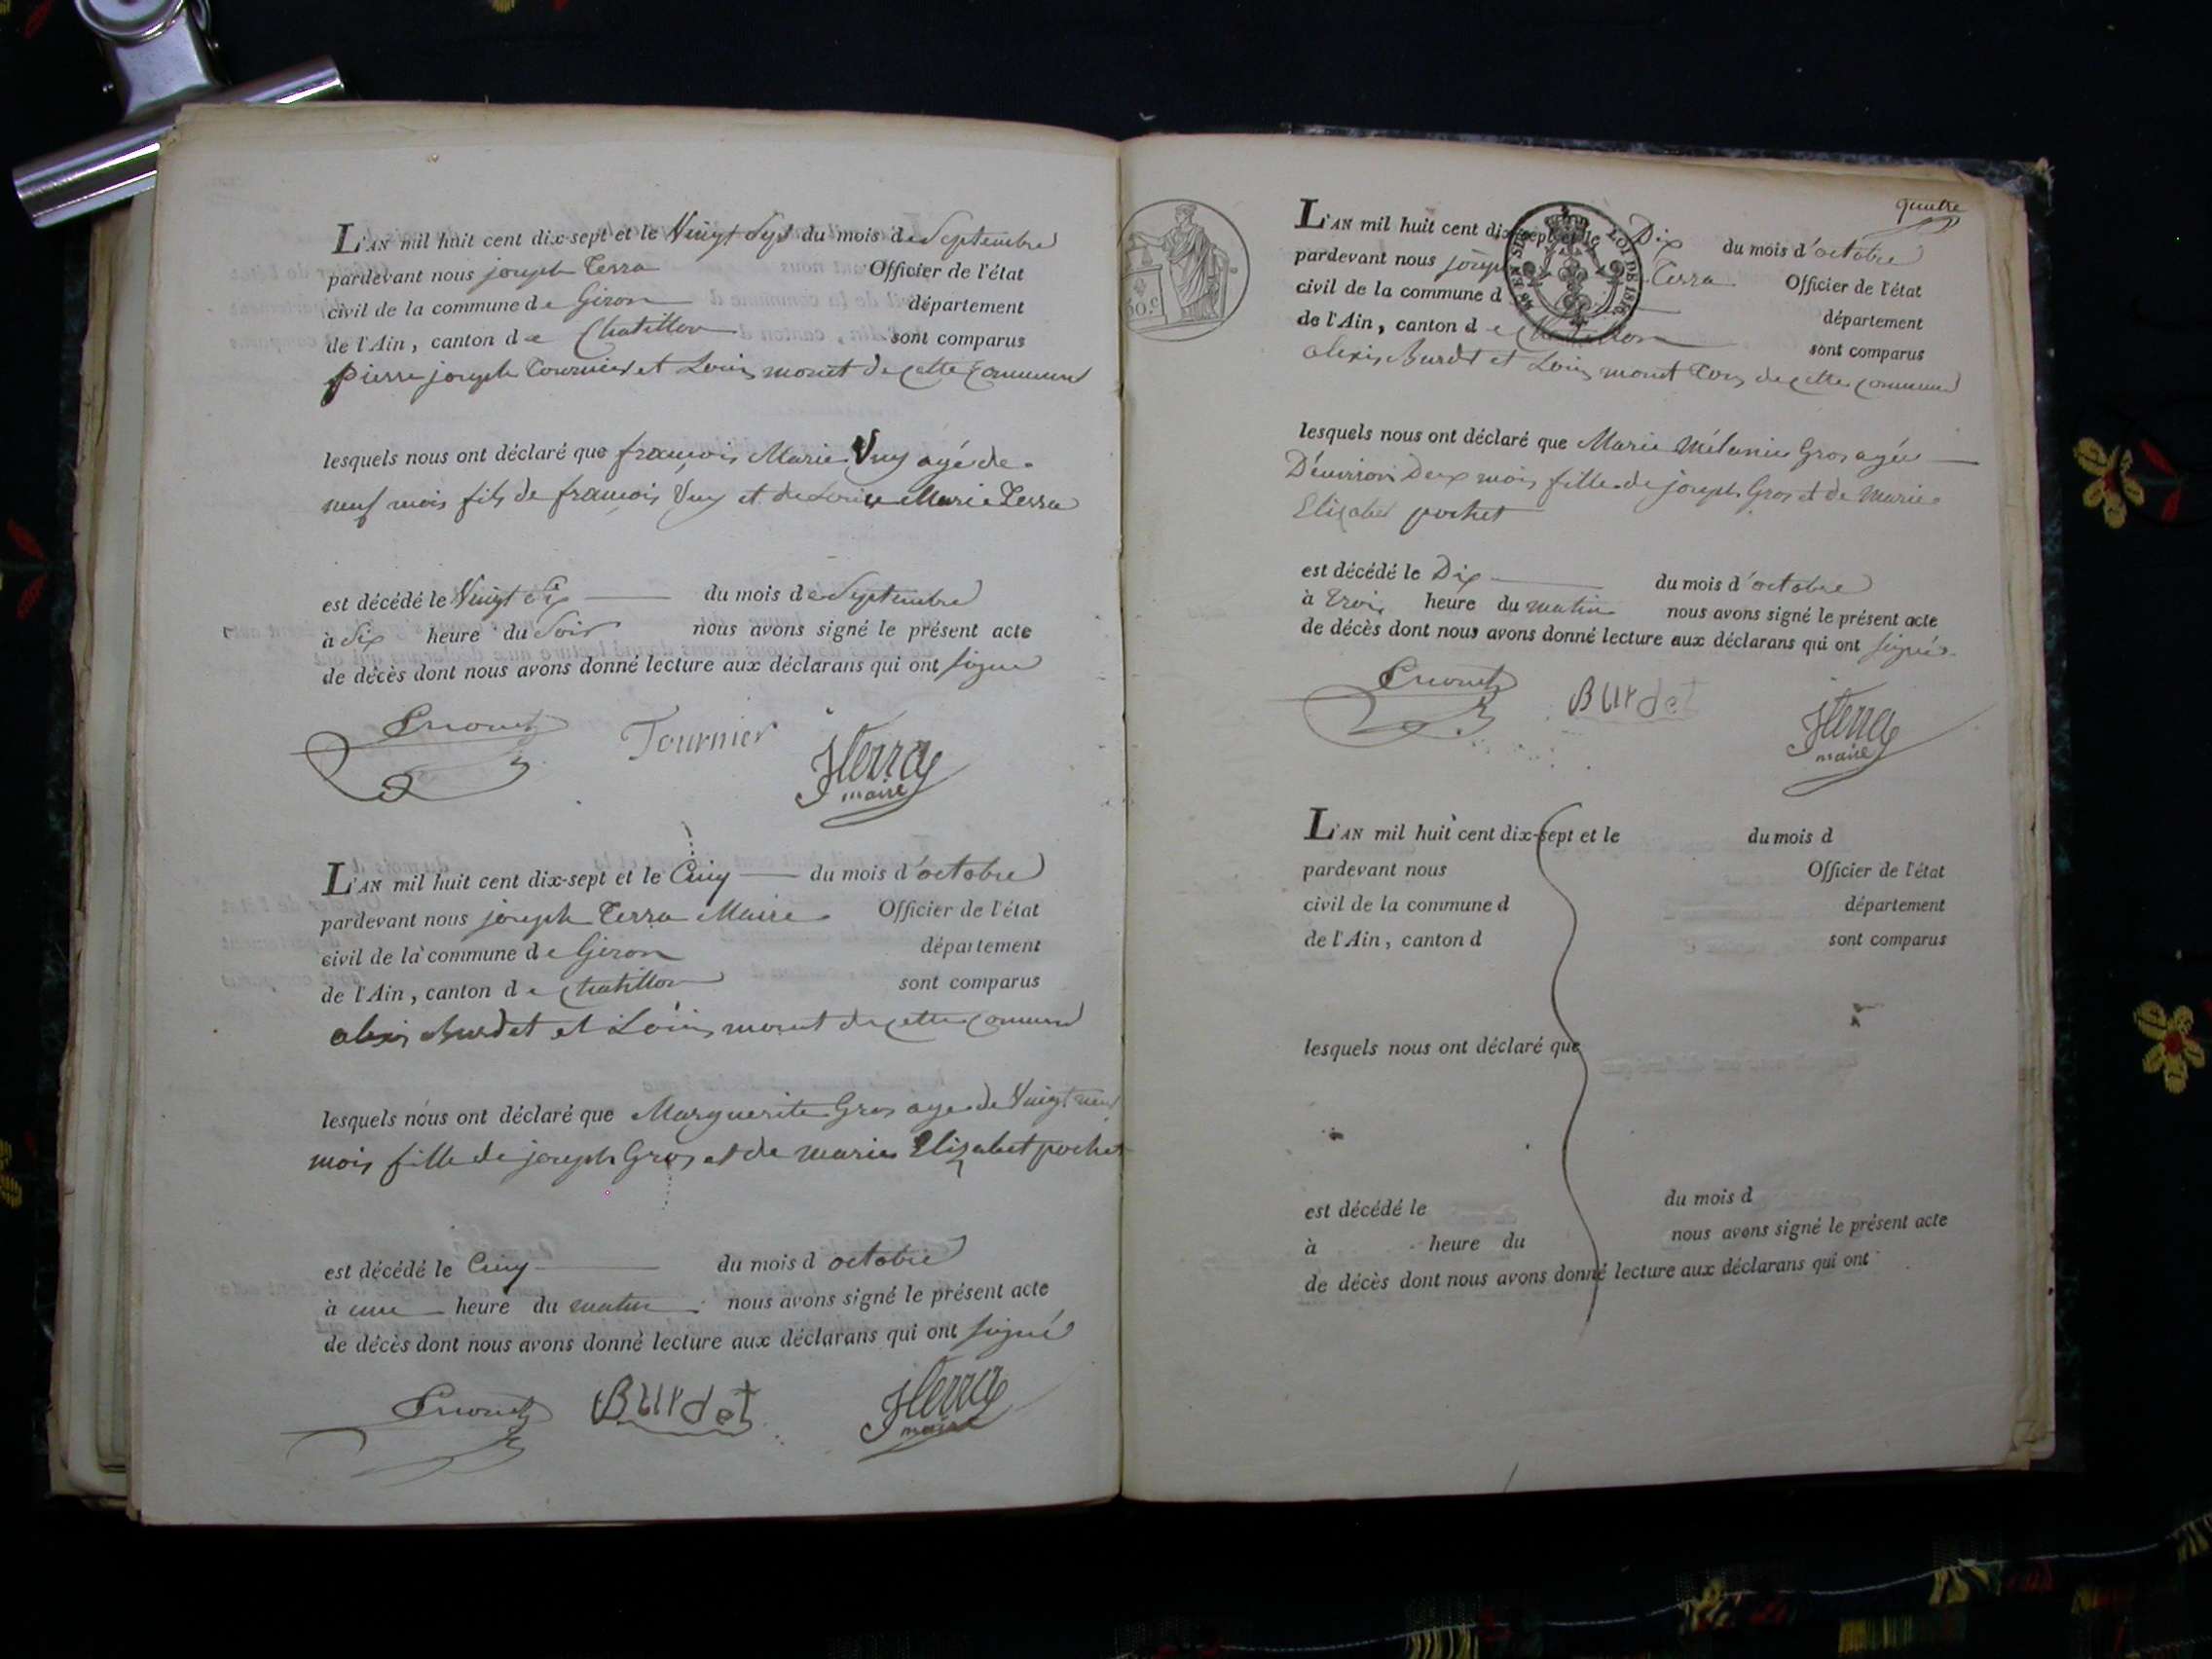 L'AN mil huit cent dix-sept et le Vingt Sept du mois de Septembre
pardevant nous joseph Terra Officier de l'état
civil de la commune de Giron département
de l'Ain, canton de Chatillon sont comparus
pierre joseph Tournier et Louis monet de cette commune
lesquels nous ont déclaré que françois Marie Vuy agé de
neuf mois fils de françois Vuy et de Marie Terra
est décédé le Vingt Six du mois de Septembre
à Six heure du Soir nous avons signé le présent acte
de décès dont nous avons donné lecture aux déclarans qui ont signé
Tournier JTerra
maire
L'AN mil huit cent dix-sept et le Cinq du mois d'octobre
pardevant nous joseph Terra Maire Officier de l'état
civil de la commune de Giron département
de l'Ain, canton de Chatillon sont comparus
alexis Burdet et Louis monet de cette commune
lesquels nous ont déclaré que Marguerite Gros agé de Vingt neuf
mois fille de joseph Gros et de marie Elizabet pochet
est décédé le Cinq du mois d octobre
à une heure du matin nous avons signé le présent acte
de décès dont nous avons donné lecture aux déclarans qui ont signé
Burdet JTerra
maire
quatre
L'AN mil huit cent dix-sept et le Dix du mois d'octobre
pardevant nous joseph Terra Officier de l'état
civil de la commune d département
de l'Ain, canton de Chatillon sont comparus
alexis Burdet et Louis monet tous de cette commune
LOI DE 1816
lesquels nous ont déclaré que Marie Mélanie Gros agée
D'environ Deux mois fille de joseph Gros et de Marie
Elizabet pochet
est décédé le Dix du mois d'octobre
à trois heure du matin nous avons signé le présent acte
de décès dont nous avons donné lecture aux déclarans qui ont signés
Burdet JTerra
maire
L'AN mil huit cent dix-sept et le du mois d
pardevant nous Officier de l'état
civil de la commune d département
de l'Ain, canton d sont comparus
lesquels nous ont déclaré que
est décédé le du mois d
à heure du nous avons signé le présent acte
de décès dont nous avons donné lecture aux déclarans qui ont